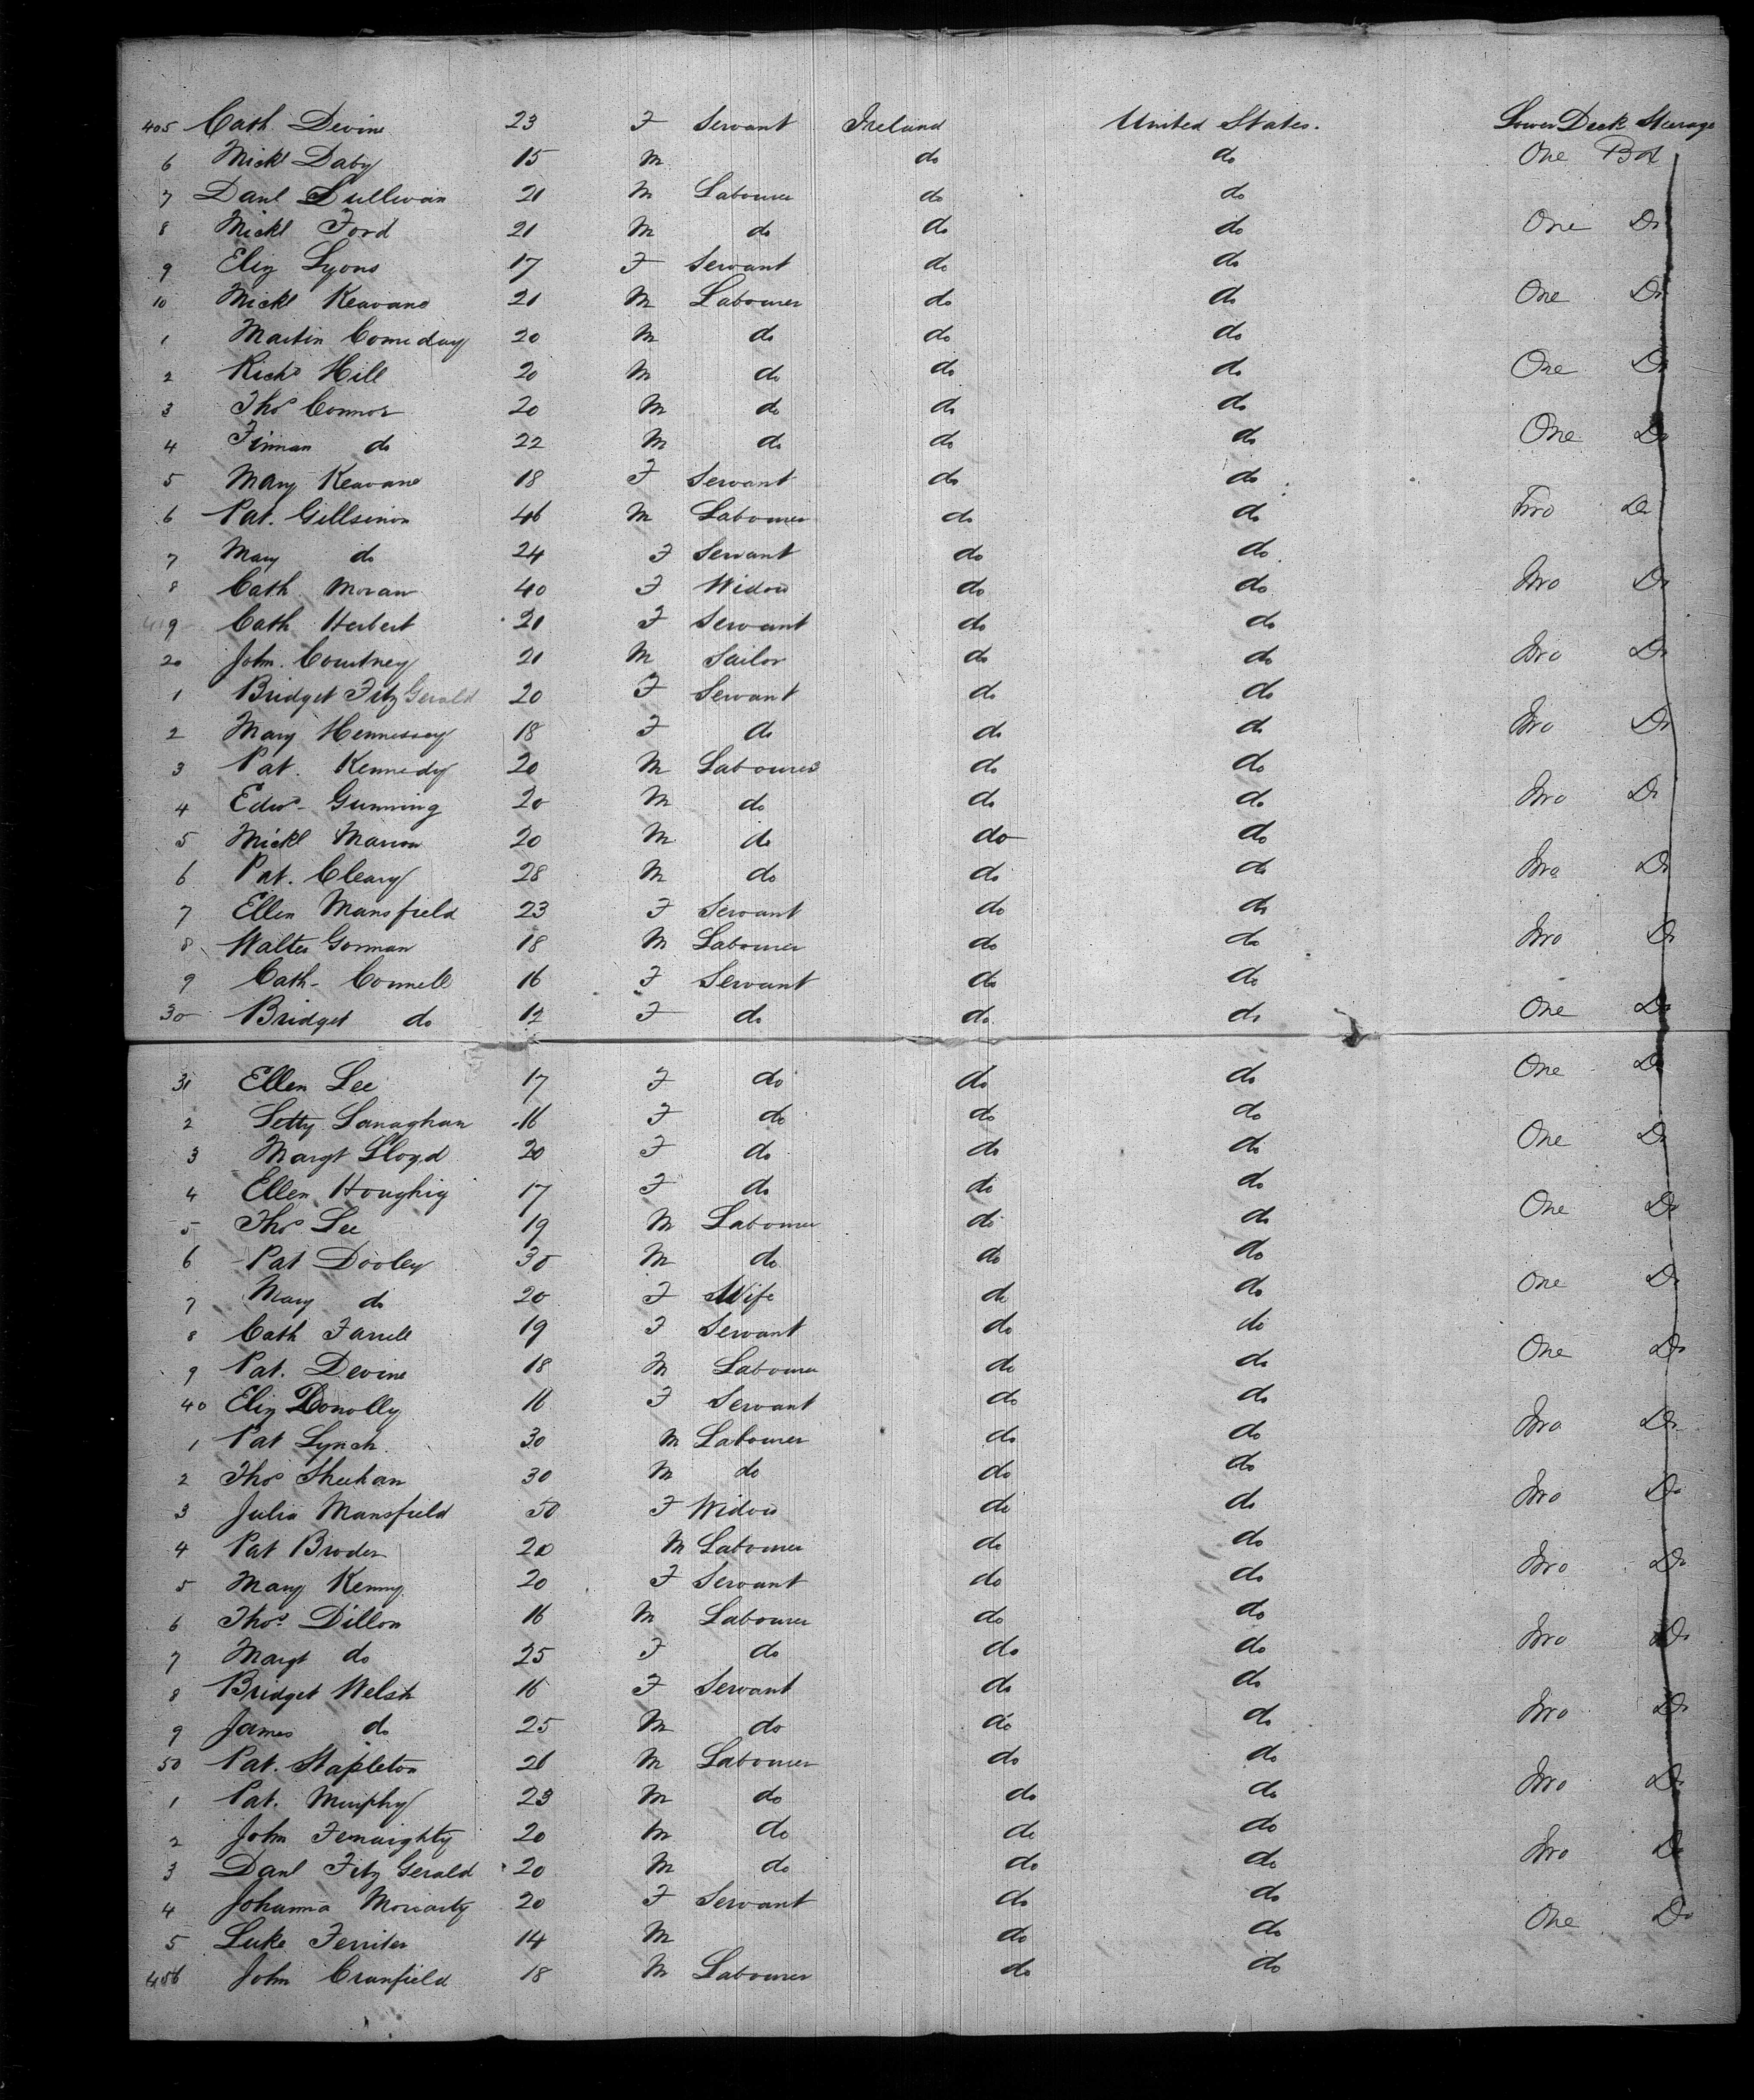 405 Cath. Devine 23 F Servant Ireland United States. Lower Deck Steerage
6 Mickl Daby 15 M do do One Bd
7 Danl Sullivan 21 M Labourer do do
8 Mickl Ford 21 M do do do One Do
9 Eliz Lyons 17 F Servant do do
10 Mickl Keavane 21 M Labourer do do One Do
1 Martin 20 M do do do
2 Richd Hill 20 M do do do One Do
3 Thos Connor 20 M do do do
4 Finnan do 22 M do do do One Do
5 Mary Keavane 18 F Servant do do
6 Pat. Gillsinon 46 M Labourer do do Two Do
7 Mary do 24 F Servant do do
8 Cath. Moran 40 F Widow do do Two Do
9 Cath Herbert 21 F Servant do do
20 John. Courtney 21 M Sailor do do Two Do
1 Bridget FitzGerald 20 F Servant do do
2 Mary Hennessey 18 F do do do Two Do
3 Pat. Kennedy 20 M Labourer do do
4 Edwd Gunning 20 M do do do Two Do
5 Mickl Marron 20 M do do do
6 Pat. Cleary 28 M do do do Two Do
7 Ellen Mansfield 23 F Servant do do
8 Walter Gorman 18 M Labourer do do Two Do
9 Cath- Connell 16 F Servant do do
30 Bridget do 12 F do do do One Do
31 Ellen Lee 17 F do do do One Do
2 Letty Lanaghan 16 F do do do
3 Margt Lloyd 20 F do do do One Do
4 Ellen Houghig 17 F do do do
5 Thos Lee 19 M Labourer do do One Do
6 Pat Dooley 30 M do do do
7 Mary do 20 F Wife do do One Do
8 Cath Farrell 19 F Servant do do
9 Pat. Devine 18 M Labourer do do One Do
40 Eliz Donolly 16 F Servant do do
1 Pat Lynch. 30 M Labourer do do Two Do
2 Thos Sheehan 30 M do do do
3 Julia Mansfield 50 F Widow do do Two Do
4 Pat Broder 20 M Labourer do do
5 Mary Kenny 20 F Servant do do Two Do
6 Thos Dillon 16 M Labourer do do
7 Margt do 25 F do do do Two Do
8 Bridget Welsh 16 F Servant do do
9 James do 25 M do do do Two Do
50 Pat. Stapleton 21 M Labourer do do
1 Pat. Murphy 23 M do do do Two Do
2 John Fenaighty 20 M do do do
3 Danl Fitz Gerald 20 M do do do Two Do
4 Johanna Moriarty 20 F Servant do do
5 Luke Ferriter 14 M do do One Do
456 John Cranfield 18 M Labourer do do